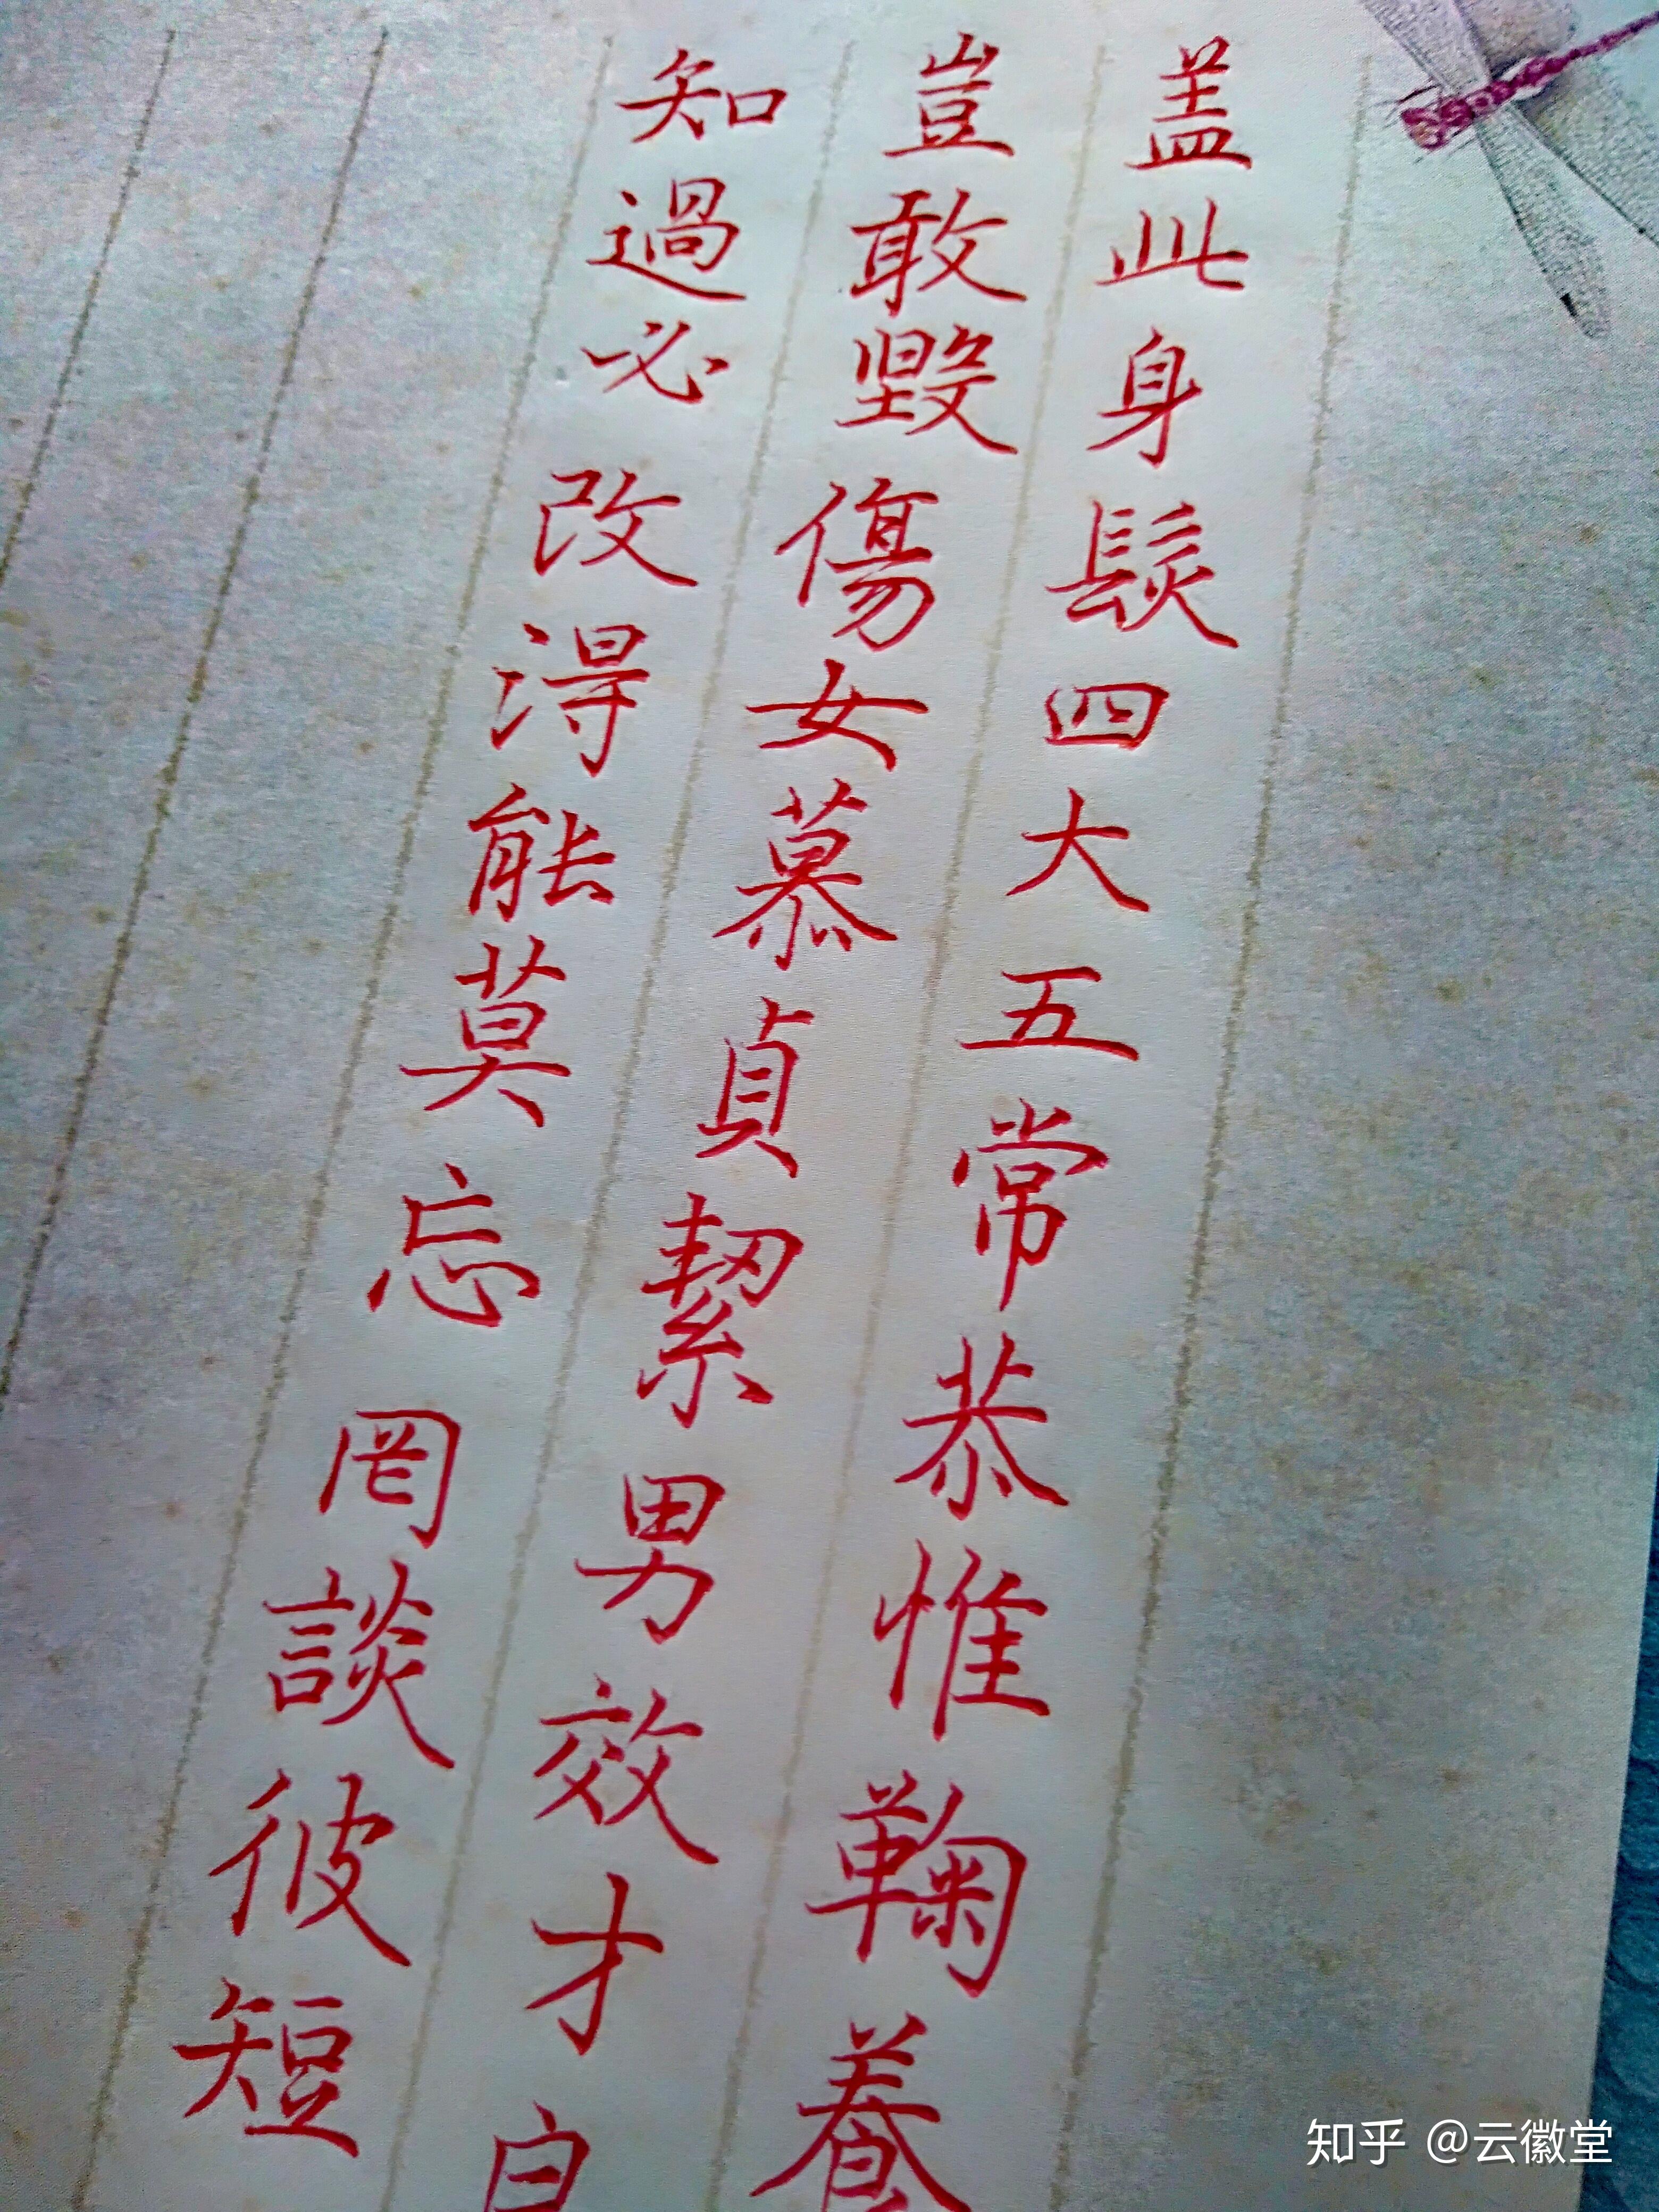 盖此身髮四大五常恭惟鞠養
豈敢毀傷女慕貞絜男效才
知過必改得能莫忘罔談彼短
知乎 @云徽堂